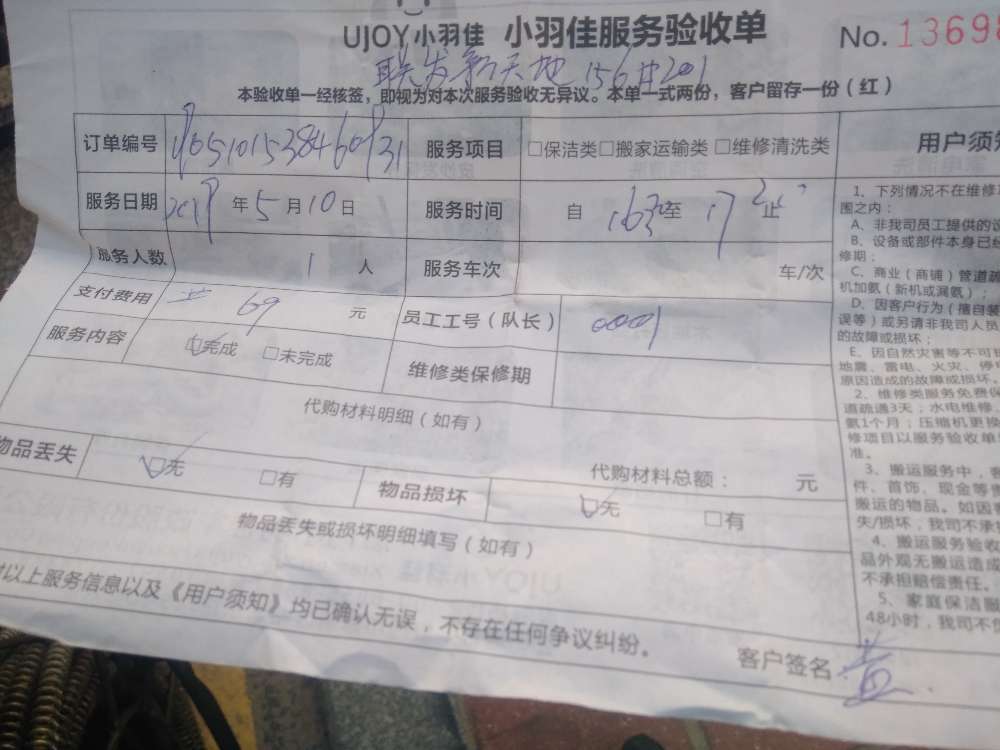 UJOY小羽佳 小羽佳服务验收单 No. 13698
联发新天地 156#201
本验收单一经核签，即视为对本次服务验收无异议。本单一式两份，客户留存一份（红）
订单编号 服务项目 □保洁类□搬家运输类 □维修清洗类
服务日期 2019 年 5 月 10 日 服务时间 自 至 止
服务人数 1 人 服务车次 车/次
支付费用 69 元 员工工号（队长） 0001
服务内容 □完成 □未完成 维修类保修期
代购材料明细（如有）
代购材料总额： 元
物品丢失 □无 □有 物品损坏 □无 □有
物品丢失或损坏明细填写（如有）
以上服务信息以及《用户须知》均已确认无误，不存在任何争议纠纷。
客户签名 黄
用户须
1、下列情况不在维修
围之内：
A、非我司员工提供的
B、设备或部件本身已
修期；
C、商业（商铺）管道疏
机加氨（新机或漏氨）；
D、因客户行为（擅自装
误等）或另请非我司人员
的故障或损坏；
E、因自然灾害等不可
地震、雷电、火灾、停
原因造成的故障或损坏。
2、维修类服务免费保
道疏通3天；水电维修
氨1个月；压缩机更换
修项目以服务验收单
准。
3、搬运服务中，
件、首饰、现金等
搬运的物品。如因
失/损坏，我司不承
4、搬运服务验收
品外观无搬运造成
不承担赔偿责任。
5、家庭保洁服
48小时，我司不